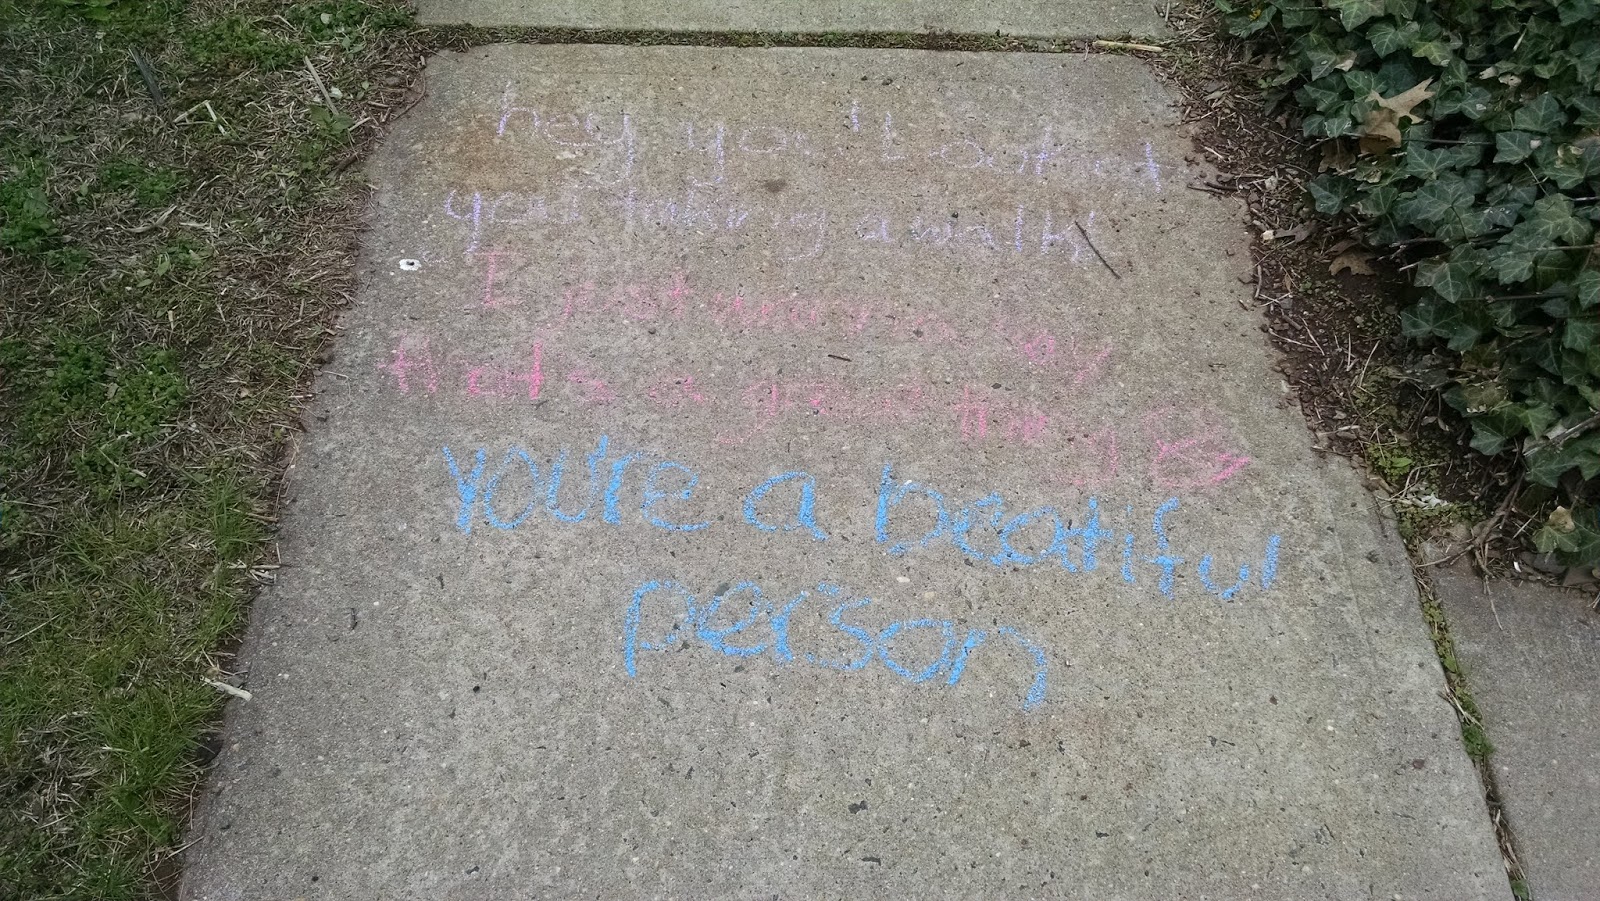 hey you
you taking a walk
I just wanna say
that's a great thing
you're a beatiful
person